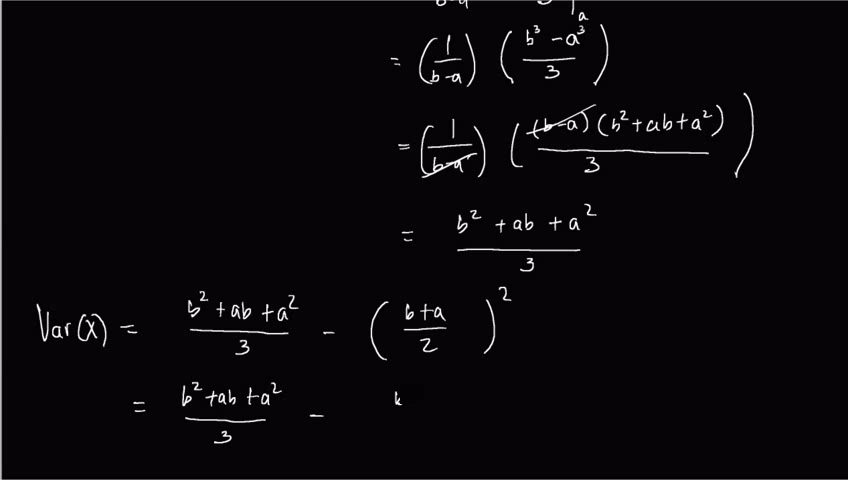 b-a 3 |a
= (1/(b-a)) ((b³-a³)/3)
= (1/(b-a)) ((b-a)(b²+ab+a²)/3)
= (b²+ab+a²)/3
Var(X) = (b²+ab+a²)/3 - ((b+a)/2)²
= (b²+ab+a²)/3 -